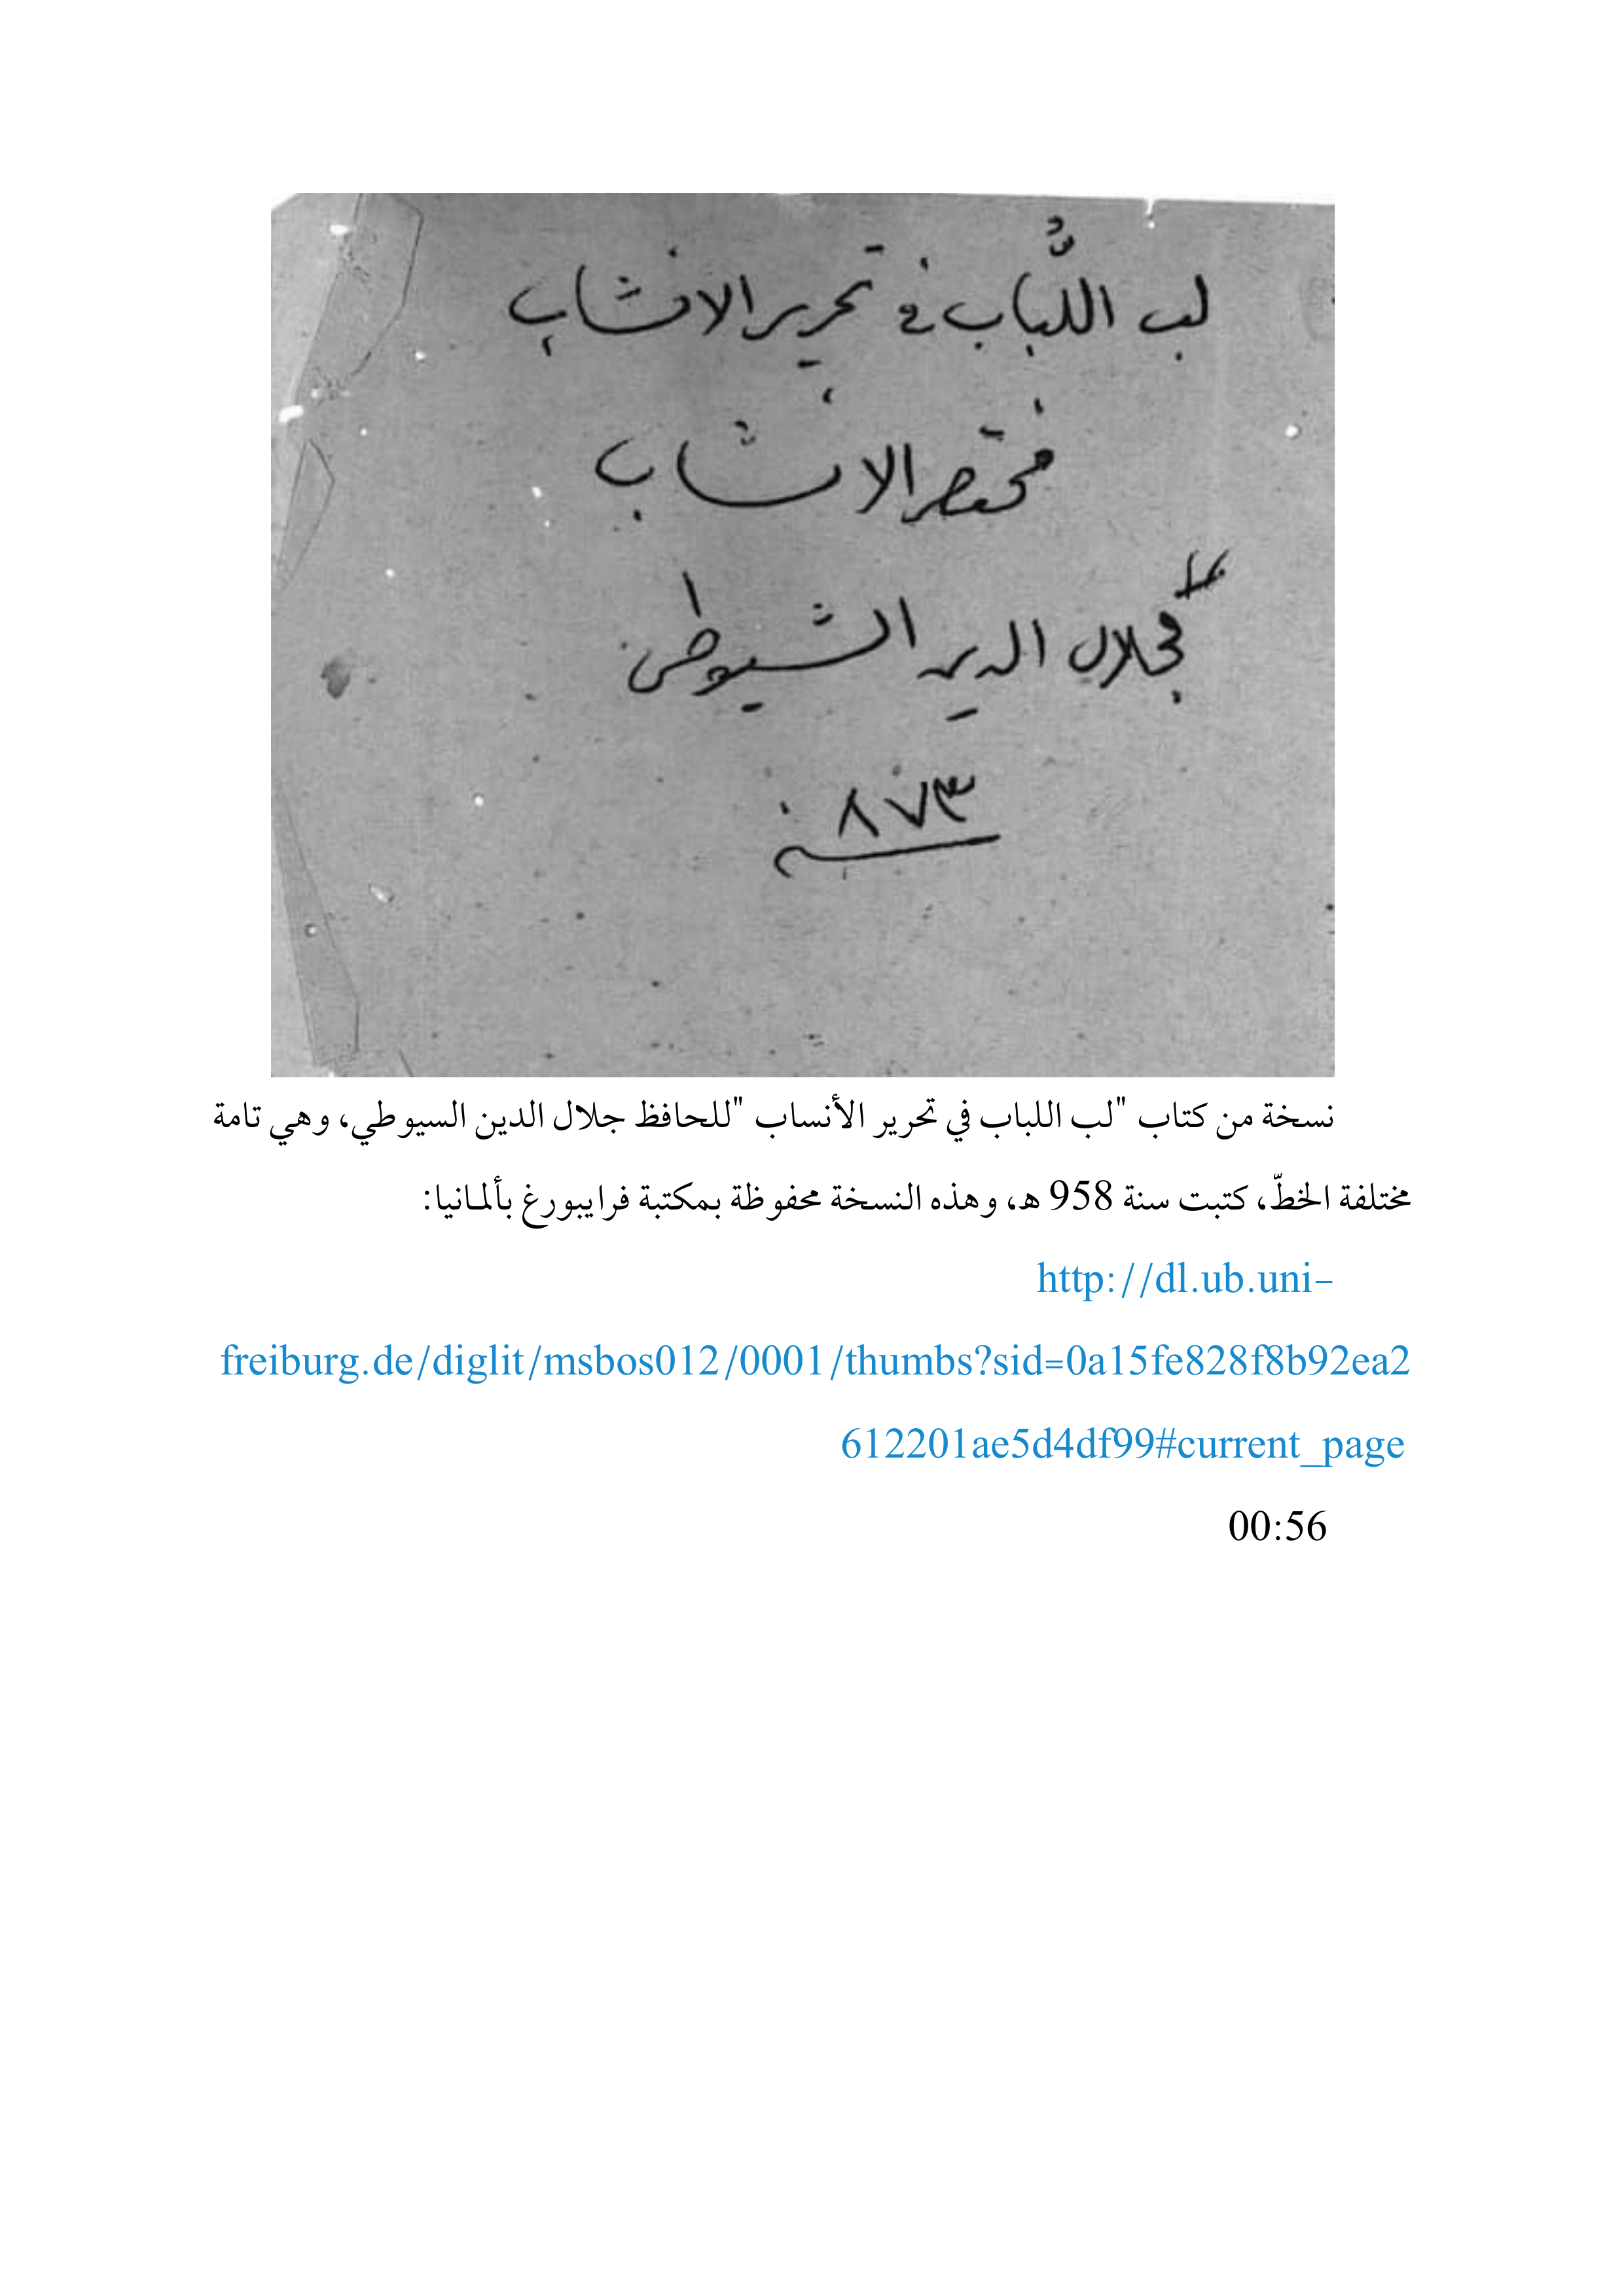 لب اللُّباب في تحرير الانساب
مختصر الانساب
لجلال الدين السيوطي
سنة ٨٧٣
نسخة من كتاب "لب اللباب في تحرير الأنساب "للحافظ جلال الدين السيوطي، وهي تامة
مختلفة الخطّ، كتبت سنة 958 هـ، وهذه النسخة محفوظة بمكتبة فرايبورغ بألمانيا:
http://dl.ub.uni-
freiburg.de/diglit/msbos012/0001/thumbs?sid=0a15fe828f8b92ea2
612201ae5d4df99#current_page
00:56